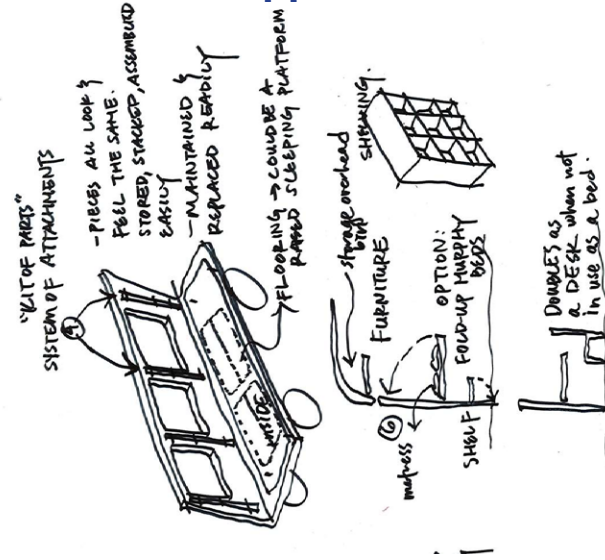 "KIT OF PARTS"
SYSTEM OF ATTACHMENTS
- PIECES ALL LOOK &
FEEL THE SAME.
STORED, STACKED, ASSEMBLED
EASILY
- MAINTAINED &
REPLACED READILY
FLOORING → COULD BE A
RAISED SLEEPING PLATFORM
INSIDE
storage overhead
FURNITURE
SHELVING.
6
matress
OPTION:
FOLD-UP MURPHY
BEDS
SHELF
DOUBLES as
a DESK when not
in use as a bed.